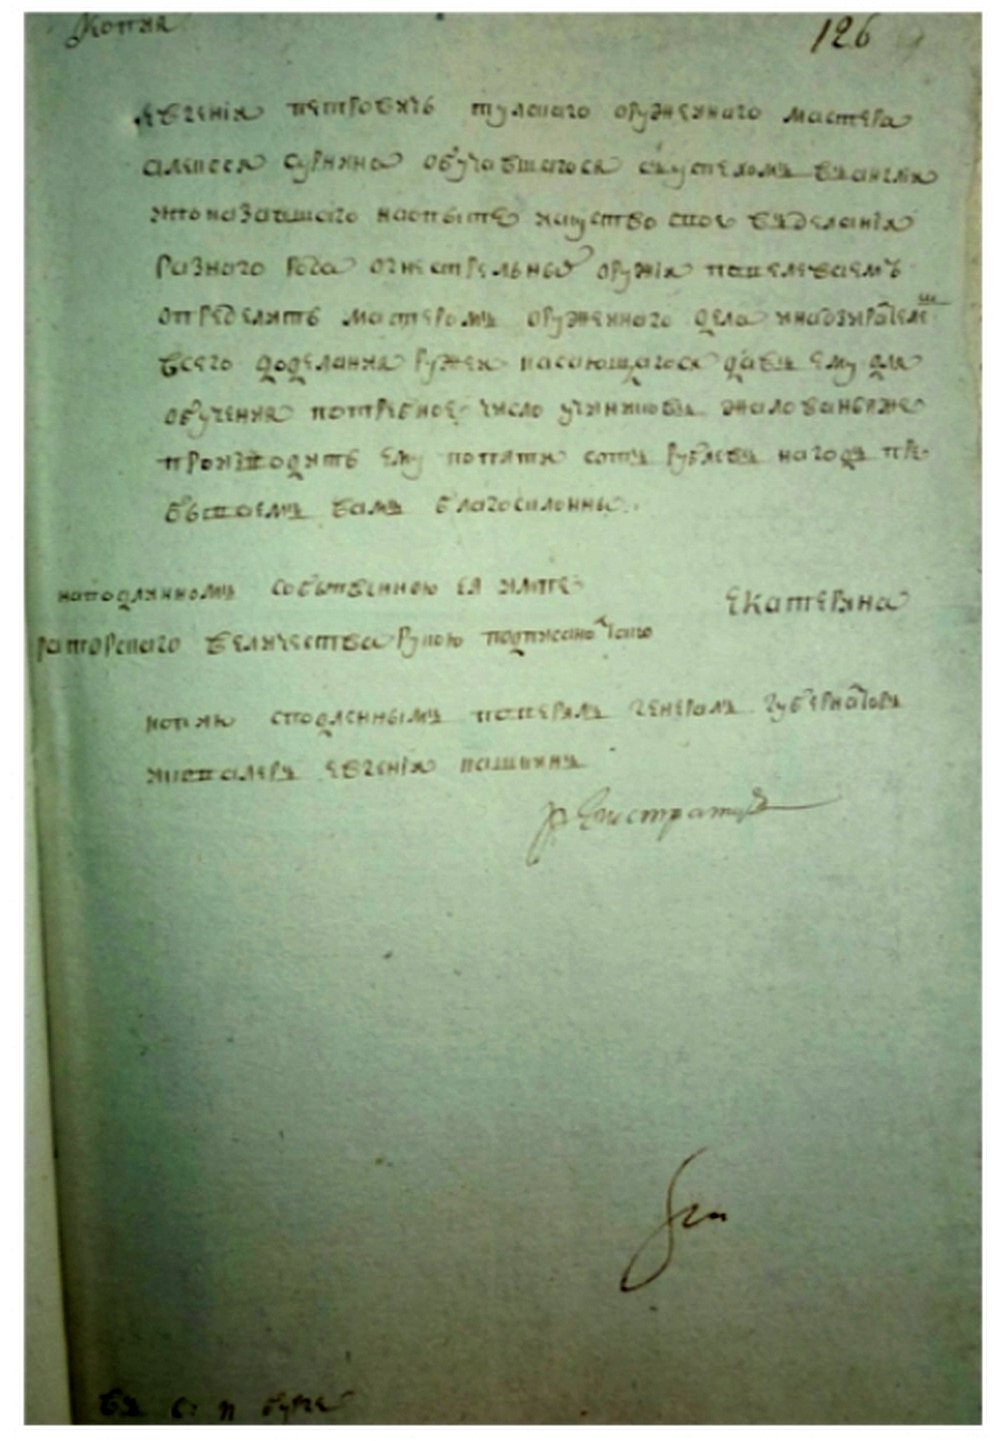 Копия
126
Евгений Петровичъ тулскаго оружейнаго мастера
алексея сурнина обучавшагося съуспехомъ въанглии
ипоказавшаго наопыте искуство свое въделании
разнаго рода огнестрельнаго оружия повелеваемъ
определить мастеромъ оружейнаго дела инадзирателемъ
всего доделания ружеи касающагося давъ ему для
обучения потребное число учениковъ жалованьеже
производить ему попяти сотъ рублевъ нагодъ пре
бываемъ вамъ благосклонны.
наподлинномъ собственною ея импе
раторскаго величества рукою подписано тако
Екатерина
копию сподленнымъ поверялъ генералъ губернаторъ
икавалеръ евгений кашкинъ
въ С: П бурге